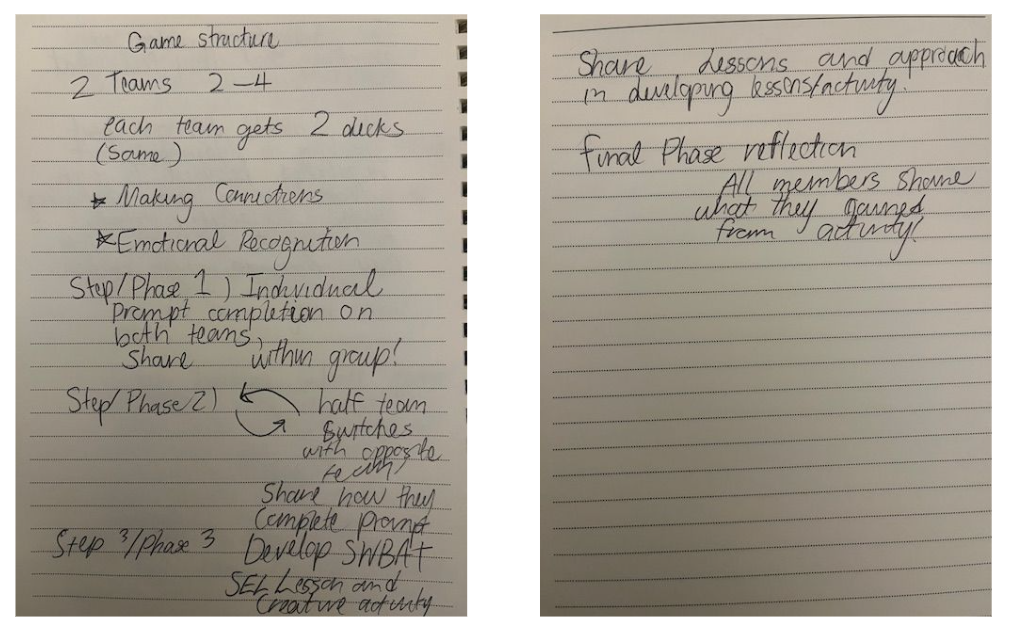 Game structure
2 Teams 2-4
each team gets 2 decks
(Same)
* Making Connections
* Emotional Recognition
Step/Phase 1) Individual
prompt completion on
both teams,
Share within group!
Step/Phase 2) half team
switches
with opposite
team!
Share how they
Complete prompt
Step 3/Phase 3 Develop SWBAT
SEL Lesson and
Creative activity
Share Lessons and approach
in developing lessons/activity.
final Phase reflection
All members share
what they gained
from activity!